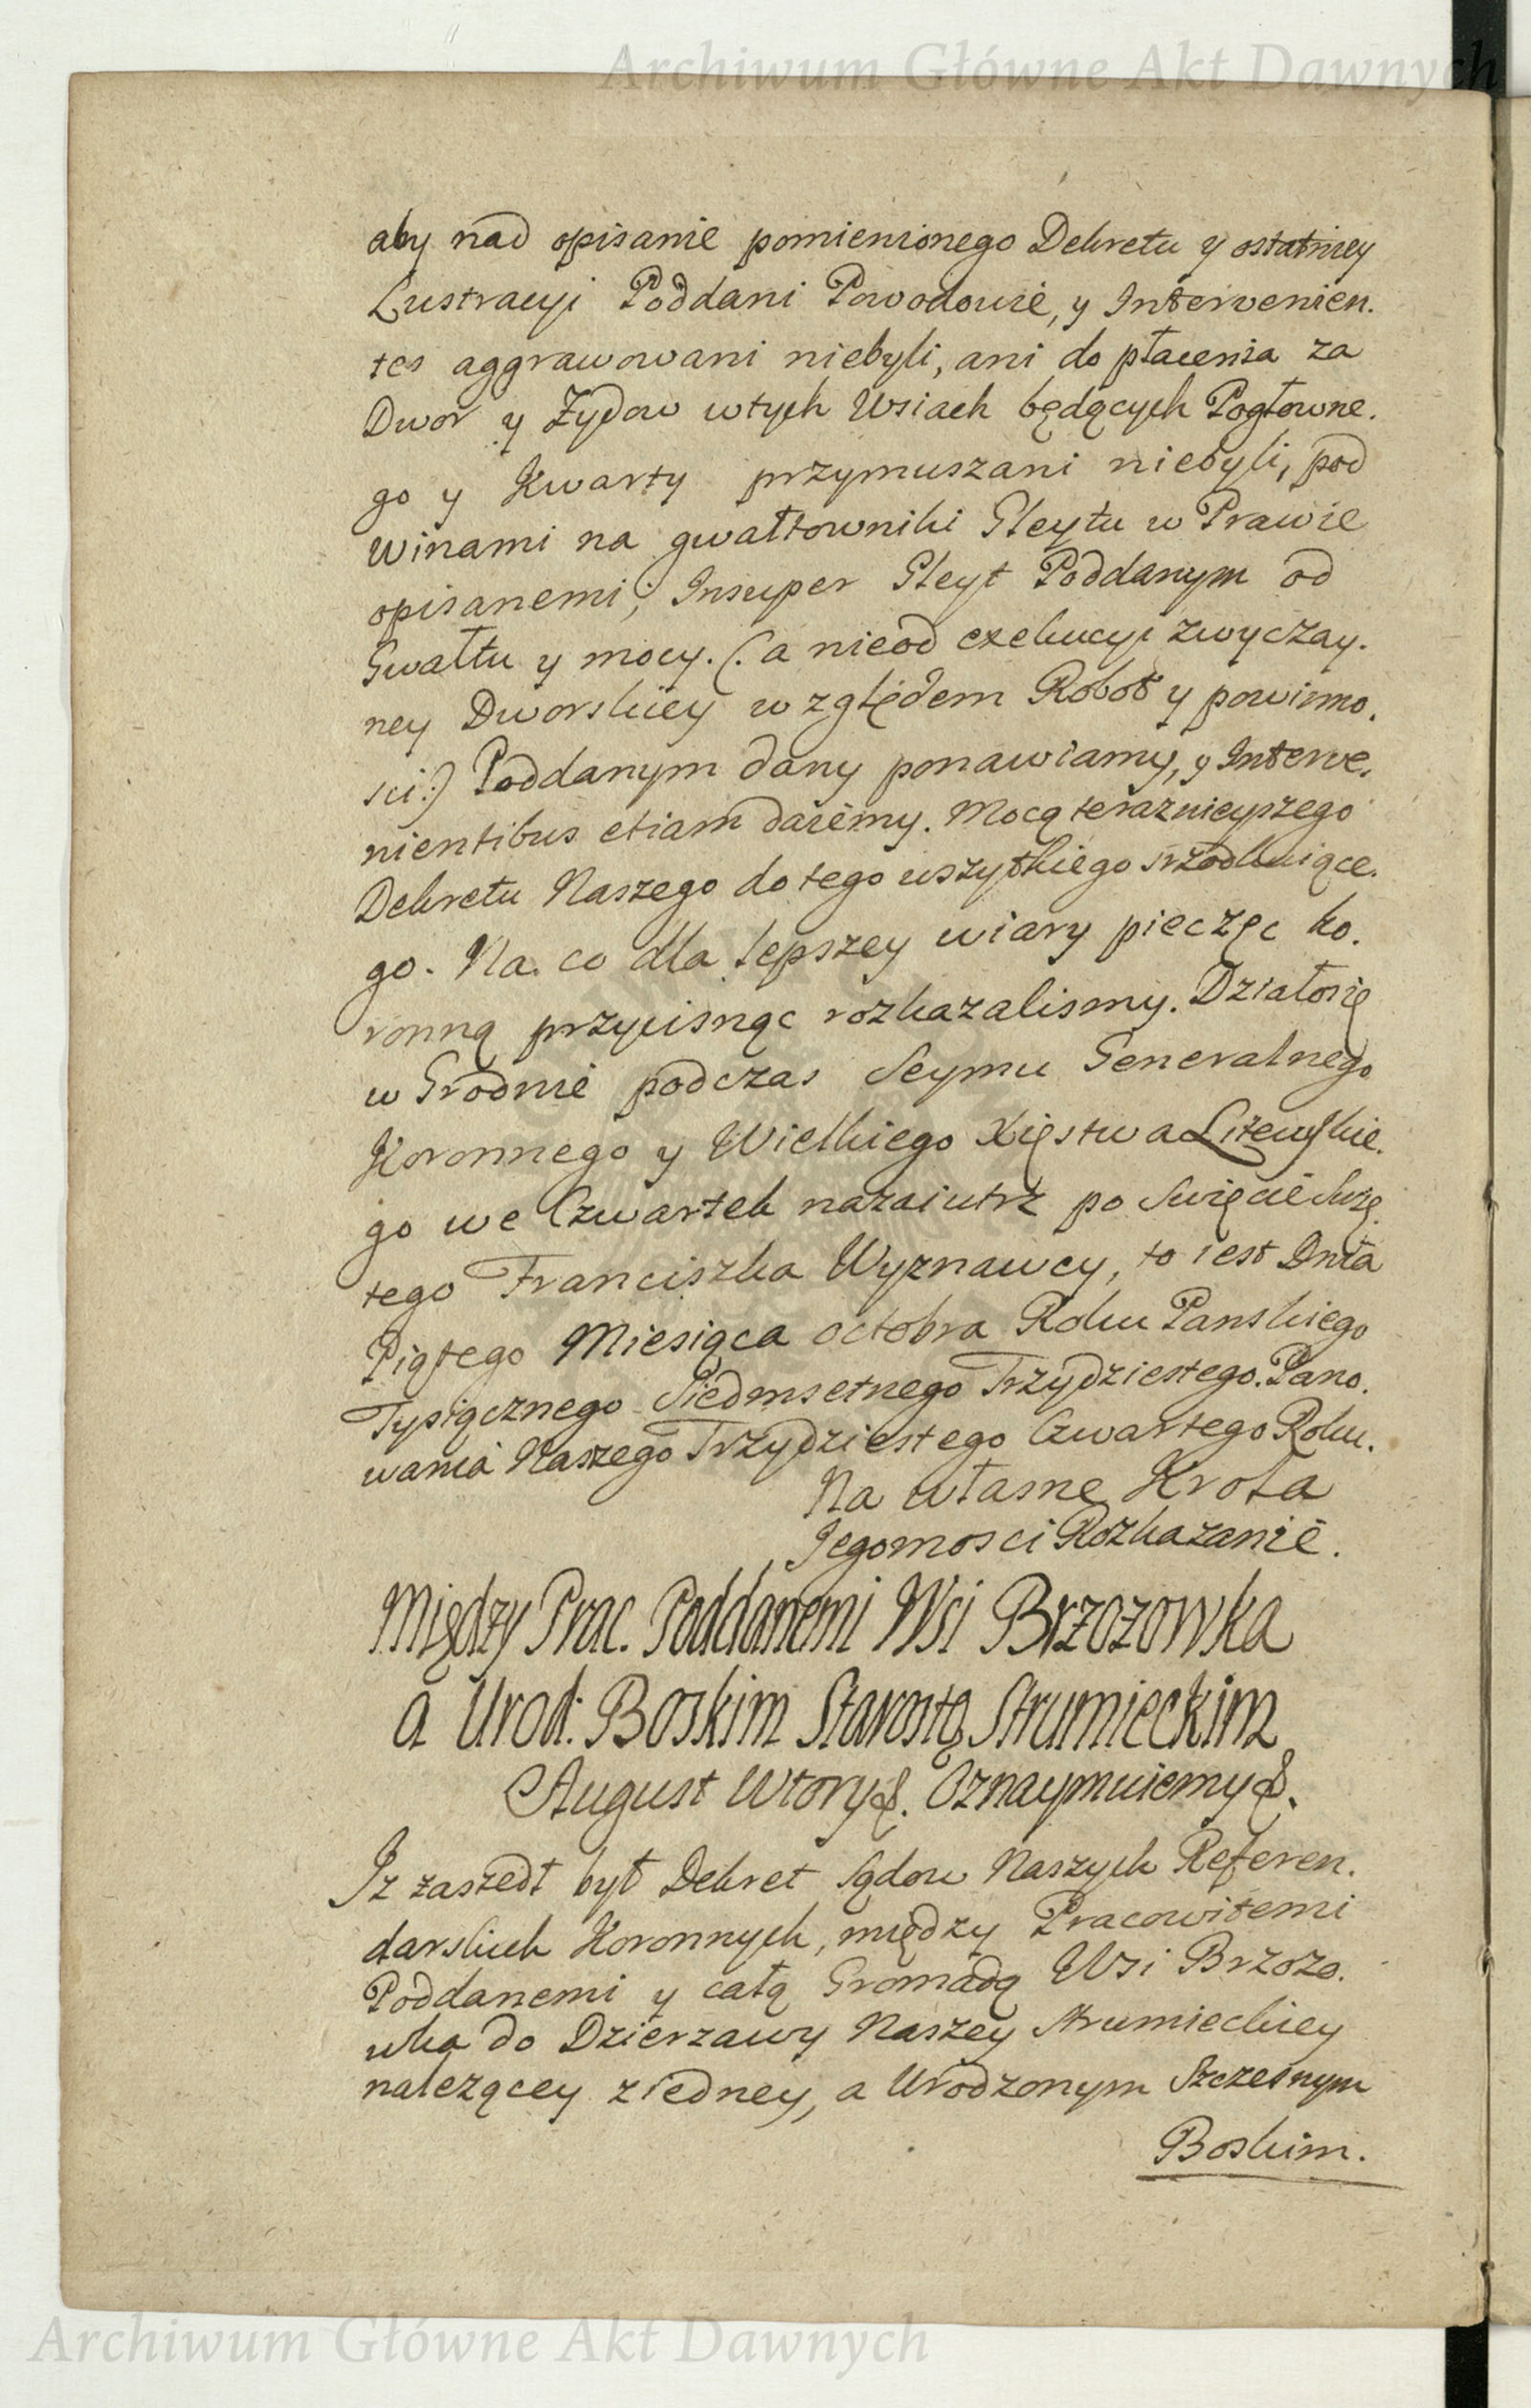 Archiwum Główne Akt Dawnych
aby nad opisanie pomienionego Dekretu y ostatniey
Lustracyi Poddani Powodowie, y Intervenien.
tes aggrawowani niebyli, ani do płacenia za
Dwor y Zydow wtych Wsiach będących Pogłowne.
go y Kwarty przymuszani niebyli, pod
winami na gwałtowniki Gleytu w Prawie
opisanemi; Insuper Gleyt Poddanym od
Gwałtu y mocy. (. a nieod exekucyi zwyczay.
ney Dworskiey względem Robot y powinno.
sci:) Poddanym dany ponawiamy, y Interve.
nientibus etiam daiemy. Mocą teraznieyszego
Dekretu Naszego do tego wszytkiego srzodkuiące.
go. Na. co dla lepszey wiary pieczęc ko.
ronną przycisnąc rozkazalismy. Działosię
w Grodnie podczas Seymu Generalnego
Koronnego y Wielkiego Xięstwa Litewskie.
go we Czwartek nazaiutrz po Swięcie Swię.
tego Franciszka Wyznawcy, to iest Dnia
Piątego Miesiąca octobra Roku Panskiego
Tysiącznego Siedmsetnego Trzydziestego. Pano.
wania Naszego Trzydziestego Czwartego Roku.
Na własne Krola
Jegomosci Rozkazanie.
Między Prac. Poddanemi Wsi Brzozowka
a Urod: Boskim Starostą Strumieckim
August Wtory &. Oznaymuiemy &.
Iz zaszedł był Dekret Sądow Naszych Referen.
darskich Koronnych, między Pracowitemi
Poddanemi y całą Gromadą Wsi Brzozo.
wka do Dzierzawy Naszey Strumieckiey
nalezącey ziedney, a Urodzonym Szczesnym
Boskim.
Archiwum Główne Akt Dawnych